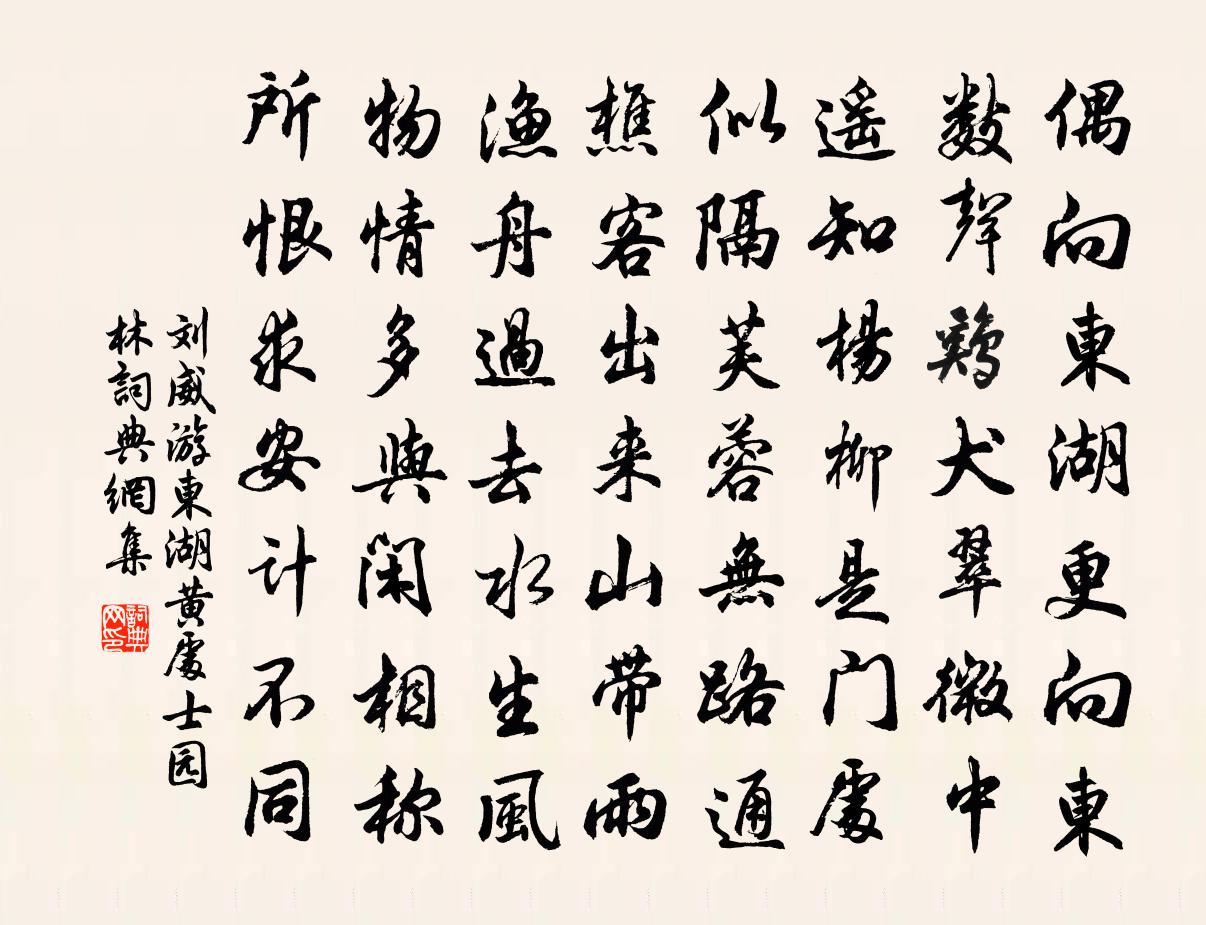 偶向東湖更向東
數聲鷄犬翠微中
遥知楊柳是门處
似隔芙蓉無路通
樵客出来山带雨
漁舟過去水生風
物情多與閑相称
所恨求安计不同
刘威游東湖黄處士园
林詞典網集
詞典网印